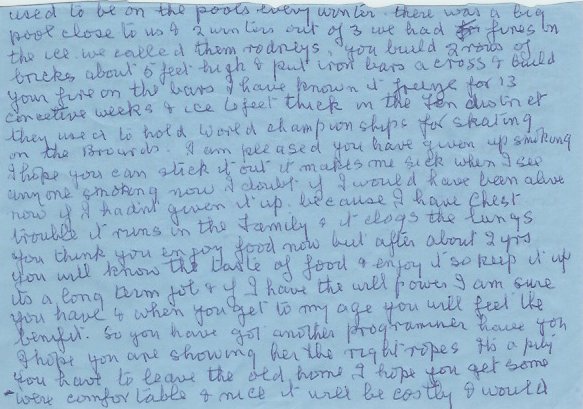 used to be on the pools every winter. there was a big
pool close to us & 2 winters out of 3 we had fires in
the ice. we called them rodneys, you build 2 rows of
bricks about 5 feet high & put iron bars a cross & build
your fire on the bars I have known it freeze for 13
concetive weeks & ice feet thick in the Fen district
they used to hold world championships for skating
on the Broards. I am pleased you have given up smoking
I hope you can stick it out it makes me sick when I see
anyone smoking now I doubt if I would have been alive
now if I hadnt given it up. because I have chest
trouble it runs in the family & it clogs the lungs
you think you enjoy food now but after about 2 yrs
you will know the taste of food & enjoy it so keep it up
its a long term job & if I have the will power I am sure
you have & when you get to my age you will feel the
benifit. So you have got another programmer have you
I hope you are showing her the right ropes Its a pity
you have to leave the old home I hope you get some
were comfortable & nice it will be costly & would